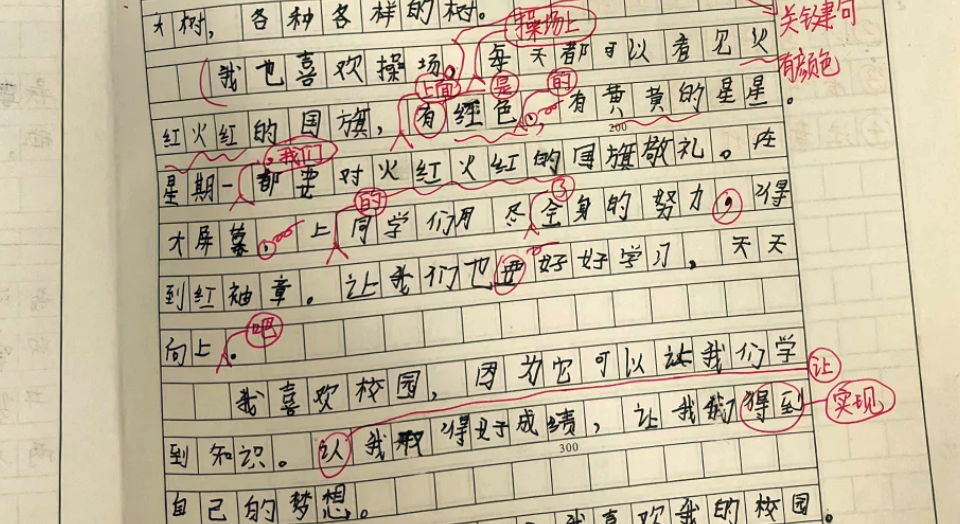 大树，各种各样的树。
操场上
关键句
我也喜欢操场。每天都可以看见火
有颜色
上面 是 的
红火红的国旗，有红色，有黄黄的星星。
200
，我们
星期一都要对火红火红的国旗敬礼。在
的 了
大屏幕，上同学们用尽全身的努力，得
到红袖章。让我们也要好好学习，天天
吧
向上。
我喜欢校园，因为它可以让我们学
让
到知识。认我取得好成绩，让我我们得到
实现
300
自己的梦想。
我喜欢我的校园。